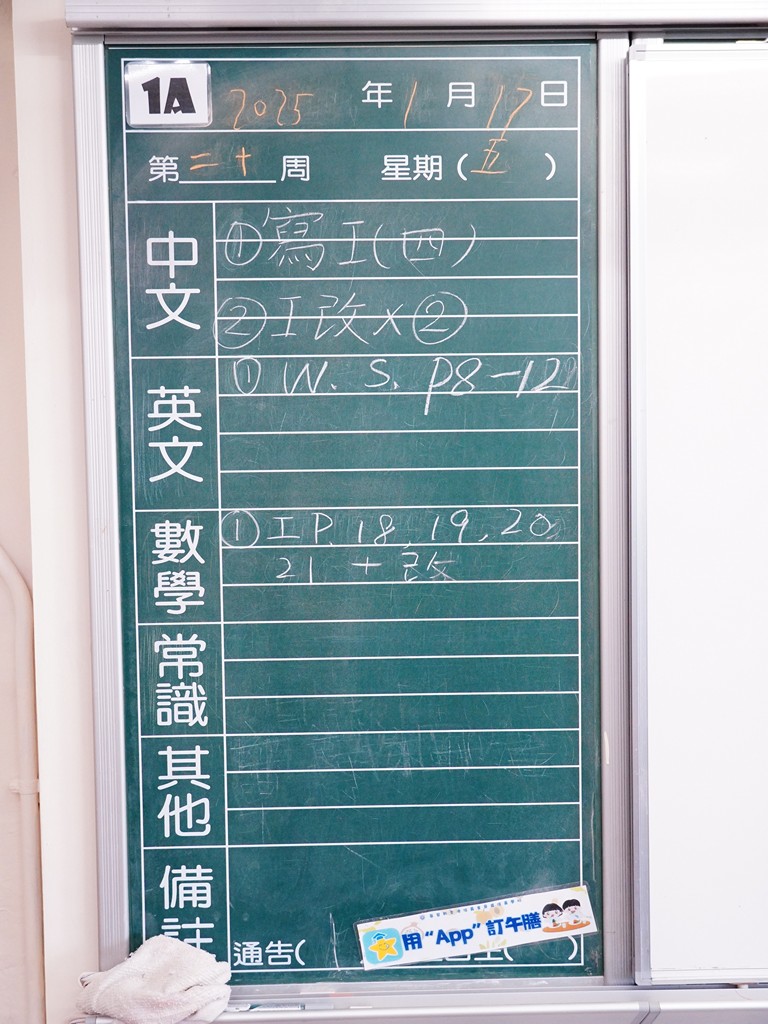 1A 2025 年 1 月 17 日
第 二十 周 星期 ( 五 )
中文
① 寫工(四)
② 工改 x ②
英文
① W. S. P8-12
數學
① 工 P. 18, 19, 20
21 + 改
常識
其他
備註
通告(
用 “App” 訂午膳
)